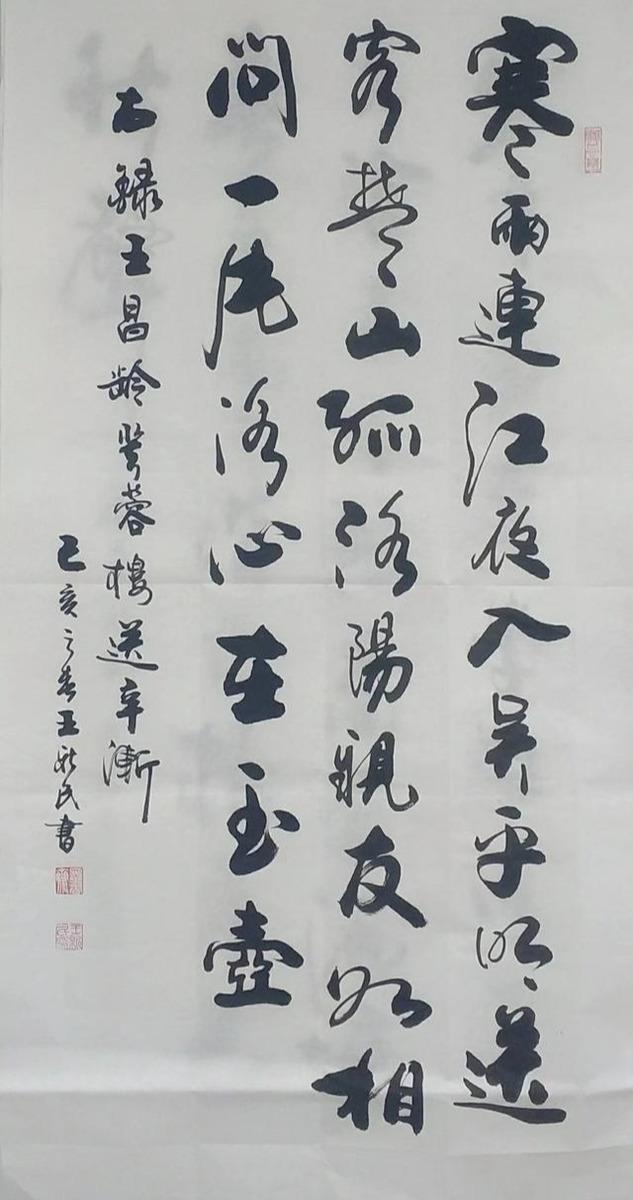 寒雨連江夜入吳平明送
客楚山孤洛陽親友如相
問一片冰心在玉壺
右錄王昌齡芙蓉樓送辛漸
己亥之春王新民書